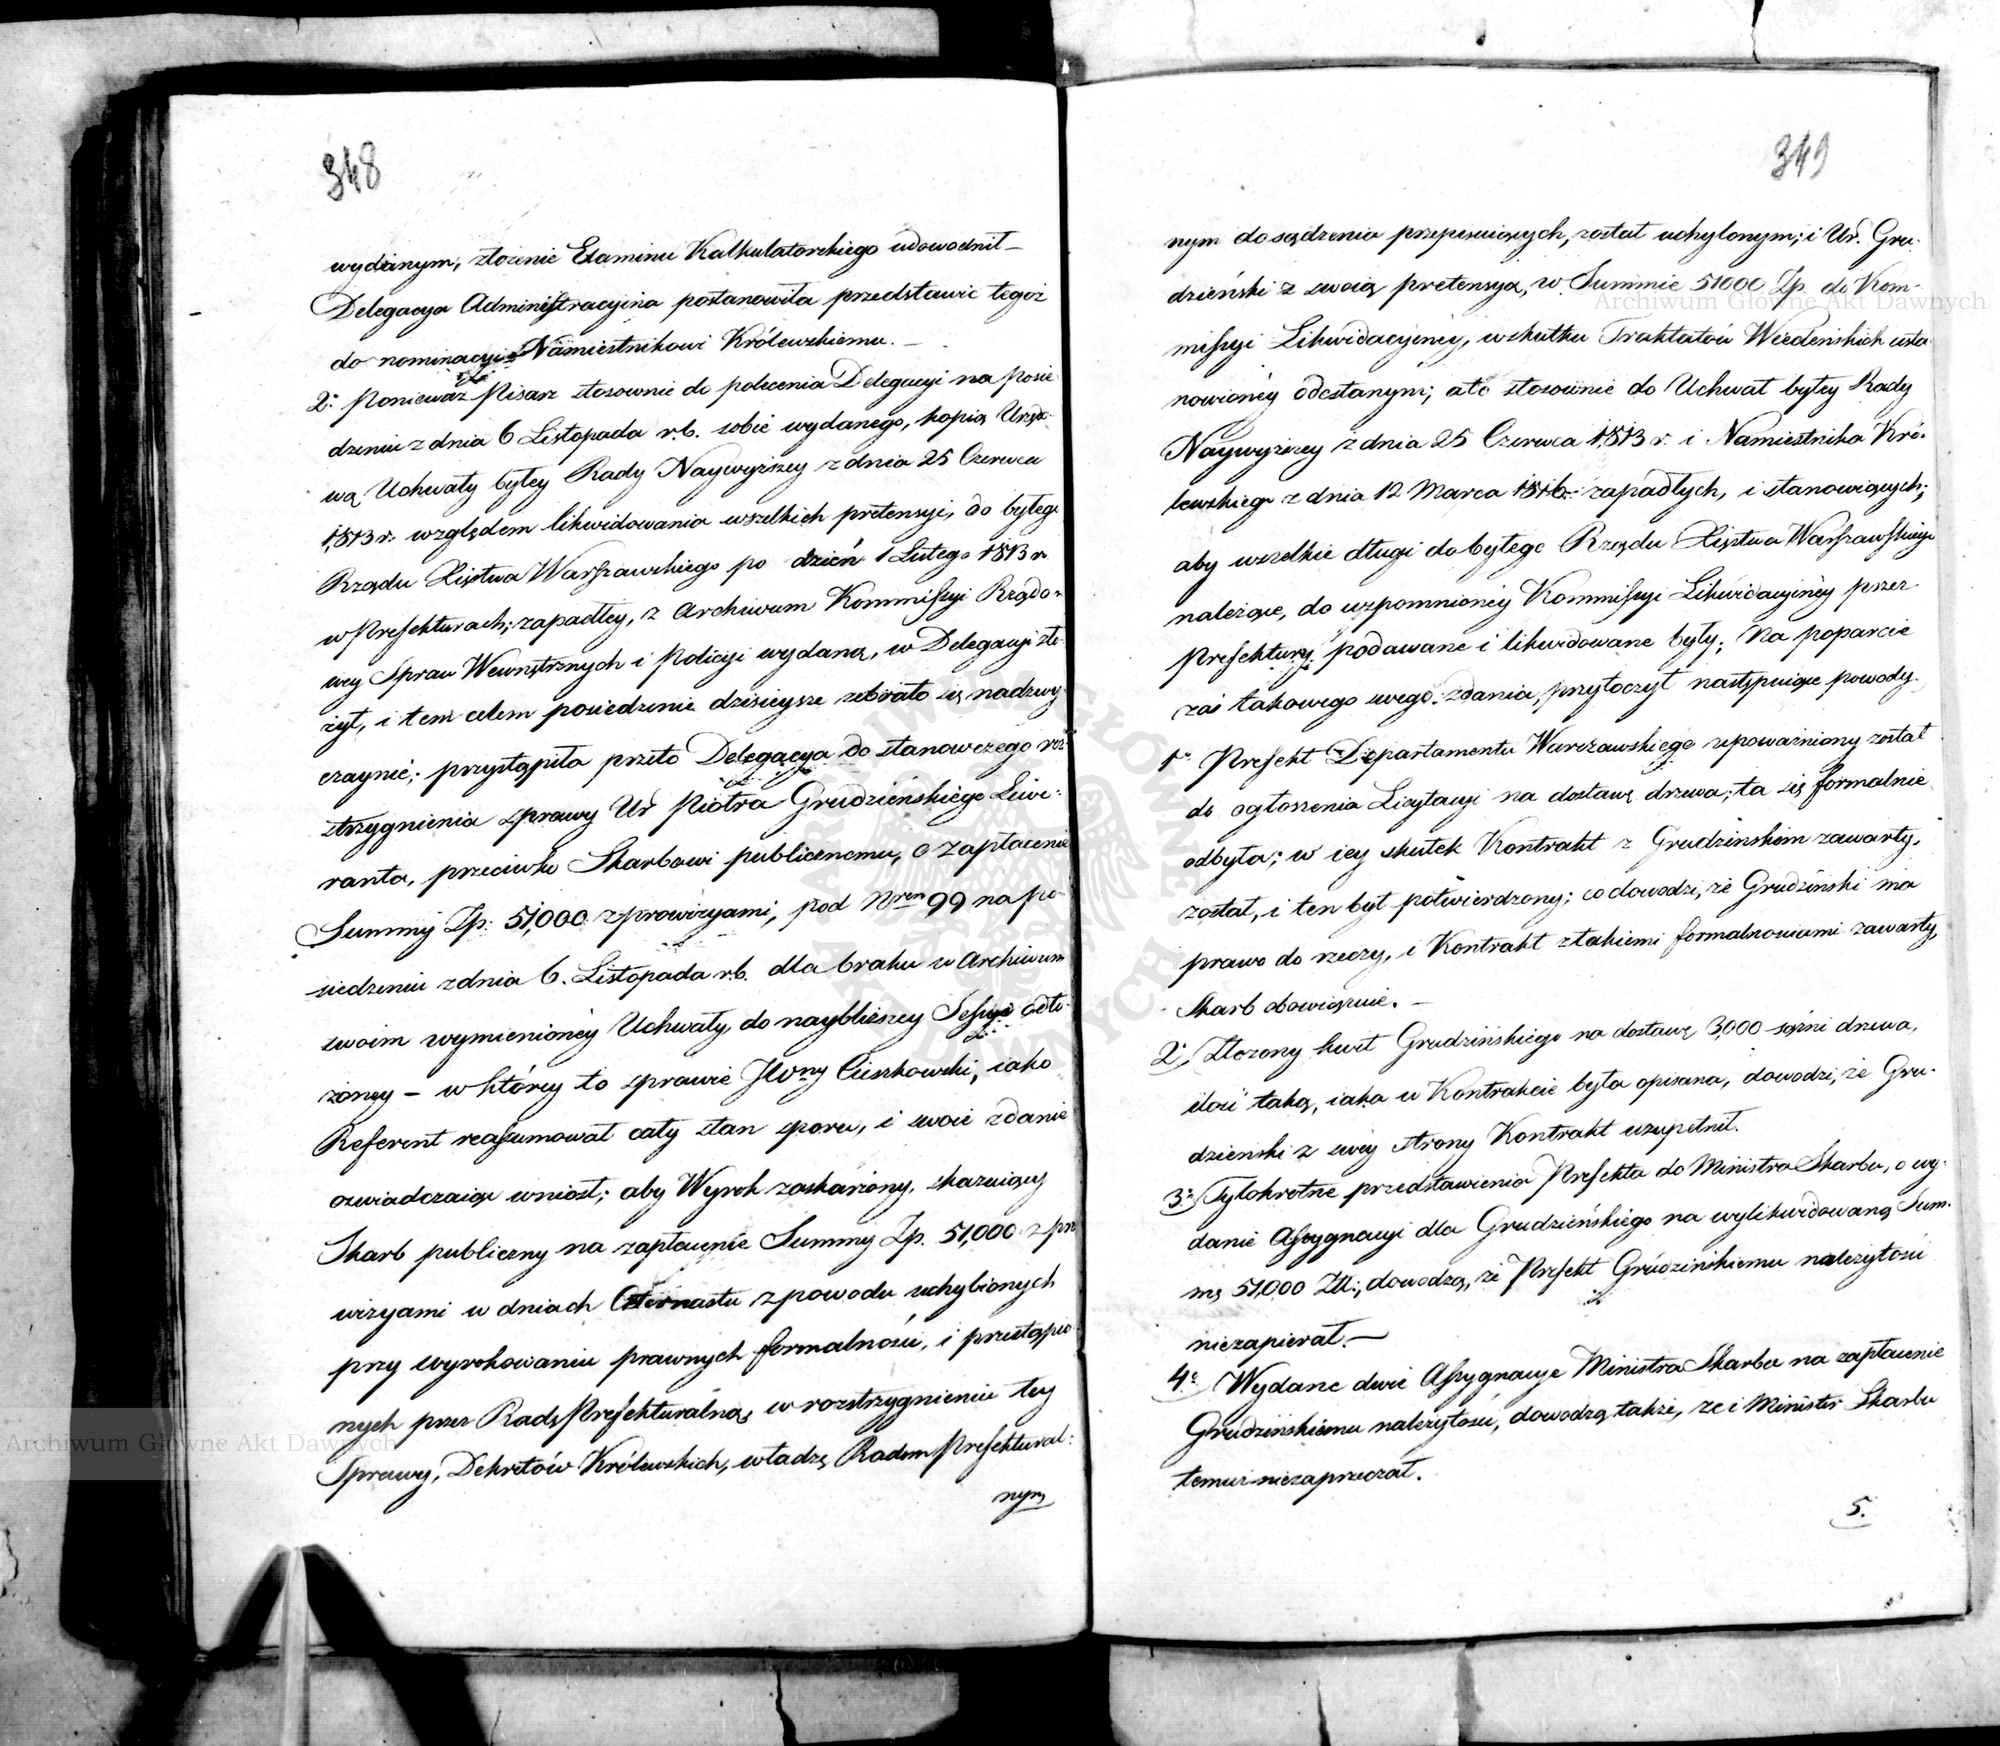 348
wydanym, złożenie Examinu Kalkulatorskiego udowodnił –
Delegacya Administracyina postanowiła przedstawić tegoż
do nominacyi Namiestnikowi Królewskiemu. –
2º Ponieważ Pisarz stosownie do polecenia Delegacyi na Posie-
dzeniu z dnia 6 Listopada r.b. sobie wydanego, kopią Urzędo-
wą Uchwały byłey Rady Naywyższey z dnia 25 Czerwca
1,813 r. względem likwidowania wszelkich pretensyi, do byłego
Rządu Xięstwa Warszawskiego po dzień 1 Lutego 1813 r.
w Prefekturach; zapadłey, z Archiwum Kommissyi Rządo-
wey Spraw Wewnętrznych i Policyi wydaną, w Delegacyi zło-
żył, i tem celem posiedzenie dzisieysze zebrało się nadzwy-
czaynie; przystąpiła przeto Delegacya do stanowczego roz-
strzygnienia sprawy Ur Piotra Grudzieńskiego Liwe-
ranta, przeciwko Skarbowi publicznemu, o zapłacenie
Summy Zp. 51,000 z prowizyami, pod Nrem 99 na po-
siedzeniu z dnia 6. Listopada r.b. dla braku w Archiwum
swoim wymienionéy Uchwały, do naybliższey Sessyi odło-
żoney – w którey to sprawie JWny Cieszkowski, iako
Referent reassumował cały stan sporu, i swoie zdanie
oświadczaiąc wniósł; aby Wyrok zaskarżony, skazuiący
Skarb publiczny na zapłacenie Summy Zp. 51,000 z pro-
wizyami w dniach Czternastu z powodu uchybionych
przy wyrokowaniu prawnych formalności, i przestąpio-
nych przez Radę Prefekturalną, w rozstrzygnieniu tey
Sprawy, Dekretów Królewskich, władzę Radom Prefektural-
nym
349
nym do sądzenia przepisuiących, został uchylonym; i Ur. Gru-
dzieński z swoią pretensyą, w Summie 51000 Zp. do Kom-
missyi Likwidacyiney, w skutku Traktatów Wiedeńskich usta-
nowionéy odesłanym; a to stosownie do Uchwał byłey Rady
Naywyższey z dnia 25 Czerwca 1,813 r. i Namiestnika Kró-
lewskiego z dnia 12 Marca 1816 r. zapadłych, i stanowiących;
aby wszelkie długi do byłego Rządu Xięstwa Warszawskiego
należące, do wspomnioney Kommissyi Likwidacyinéy przez
Prefektury podawane i likwidowane były; Na poparcie
zaś takowego swego zdania, przytoczył następuiące powody
1º Prefekt Departamentu Warszawskiego upoważniony został
do ogłoszenia Licytacyi na dostawę drzewa; ta się formalnie
odbyła; w iey skutek Kontrakt z Grudzińskim zawarty,
został, i ten był potwierdzony; co dowodzi, że Grudziński ma
prawo do rzeczy, i Kontrakt z takiemi formalnościami zawarty,
Skarb obowiązuie. –
2º Złożony kwit Grudzińskiego na dostawę 3,000 sążni drzewa,
ilość taką, iaka w Kontrakcie była opisana, dowodzi, że Gru-
dzieński z swéy strony Kontrakt uzupełnił.
3º Tylokrotne przedstawienia Prefekta do Ministra Skarbu, o wy-
danie Assygnacyi dla Grudzieńskiego na wylikwidowaną Sum-
mę 51,000 Zł:, dowodzą, że Prefekt Grudzińskiemu należytości
niezapierał. –
4º Wydane dwie Assygnacye Ministra Skarbu na zapłacenie
Grudzińskiemu należytości, dowodzą także, że i Minister Skarbu
temuż niezaprzeczał.
5.
Archiwum Główne Akt Dawnych
Archiwum Główne Akt Dawnych
ARCHIWUM GŁÓWNE AKT DAWNYCH